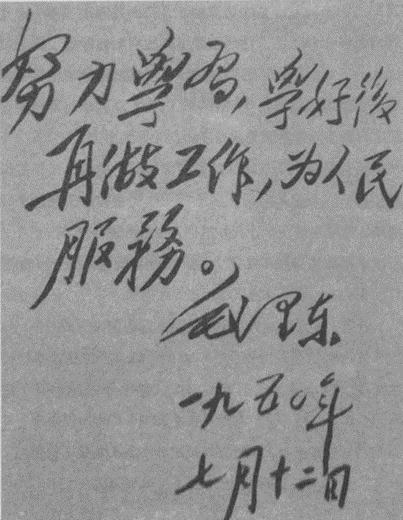 努力學習,學好後
再做工作,为人民
服務。
毛澤东
一九五〇年
七月十二日